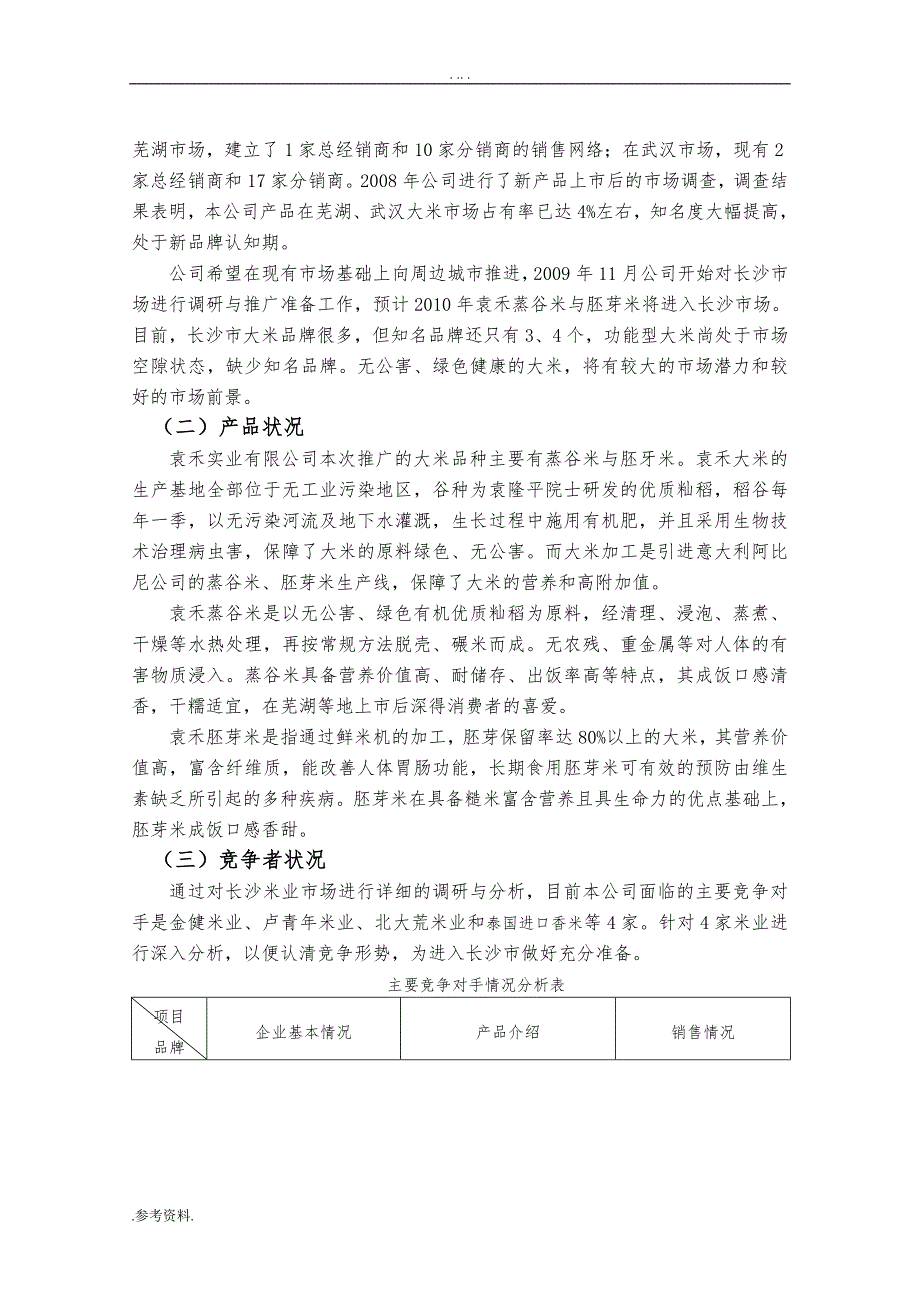 . .. .
芜湖市场，建立了 1 家总经销商和 10 家分销商的销售网络；在武汉市场，现有 2
家总经销商和 17 家分销商。2008 年公司进行了新产品上市后的市场调查，调查结
果表明，本公司产品在芜湖、武汉大米市场占有率已达 4%左右，知名度大幅提高，
处于新品牌认知期。
公司希望在现有市场基础上向周边城市推进，2009 年 11 月公司开始对长沙市
场进行调研与推广准备工作，预计 2010 年袁禾蒸谷米与胚芽米将进入长沙市场。
目前，长沙市大米品牌很多，但知名品牌还只有 3、4 个，功能型大米尚处于市场
空隙状态，缺少知名品牌。无公害、绿色健康的大米，将有较大的市场潜力和较
好的市场前景。
（二）产品状况
袁禾实业有限公司本次推广的大米品种主要有蒸谷米与胚牙米。袁禾大米的
生产基地全部位于无工业污染地区，谷种为袁隆平院士研发的优质籼稻，稻谷每
年一季，以无污染河流及地下水灌溉，生长过程中施用有机肥，并且采用生物技
术治理病虫害，保障了大米的原料绿色、无公害。而大米加工是引进意大利阿比
尼公司的蒸谷米、胚芽米生产线，保障了大米的营养和高附加值。
袁禾蒸谷米是以无公害、绿色有机优质籼稻为原料，经清理、浸泡、蒸煮、
干燥等水热处理，再按常规方法脱壳、碾米而成。无农残、重金属等对人体的有
害物质浸入。蒸谷米具备营养价值高、耐储存、出饭率高等特点，其成饭口感清
香，干糯适宜，在芜湖等地上市后深得消费者的喜爱。
袁禾胚芽米是指通过鲜米机的加工，胚芽保留率达 80%以上的大米，其营养价
值高，富含纤维质，能改善人体胃肠功能，长期食用胚芽米可有效的预防由维生
素缺乏所引起的多种疾病。胚芽米在具备糙米富含营养且具生命力的优点基础上，
胚芽米成饭口感香甜。
（三）竞争者状况
通过对长沙米业市场进行详细的调研与分析，目前本公司面临的主要竞争对
手是金健米业、卢青年米业、北大荒米业和泰国进口香米等 4 家。针对 4 家米业进
行深入分析，以便认清竞争形势，为进入长沙市做好充分准备。
主要竞争对手情况分析表
项目
品牌
企业基本情况
产品介绍
销售情况
.参考资料.